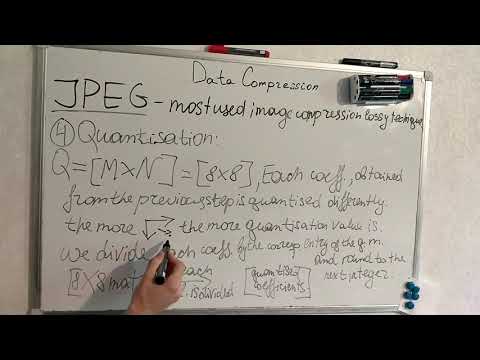 Data Compression
JPEG - most used image compression lossy technique
④ Quantisation:
Q = [M×N] = [8×8], Each coeff, obtained
from the previous step is quantised differently.
the more the more quantisation value is.
We divide each coeff. by the corresp. entity of the q. m.
and round to the
[8×8 mat each is divided [quantised coefficients] next integer.